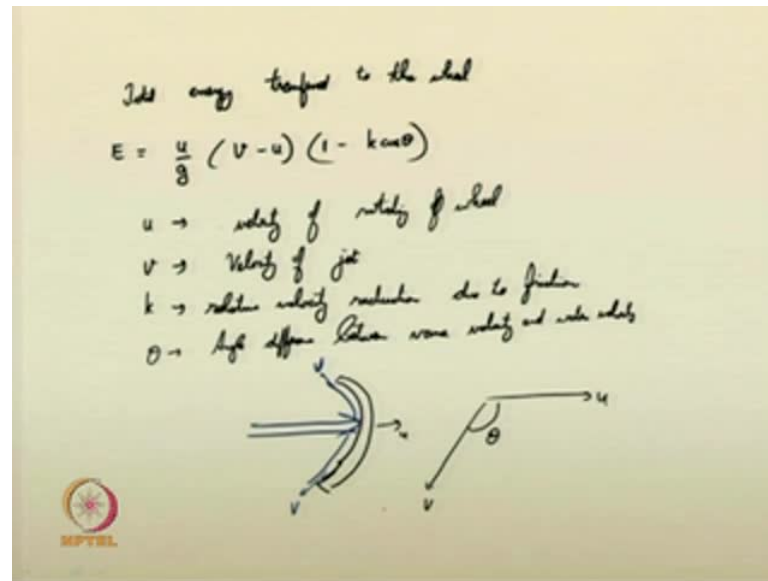 Total energy transferred to the wheel
E = u/g (V - u) (1 - k cosθ)
u → velocity of rotating of wheel
v → Velocity of jet
k → relative velocity reduction due to friction
θ → Angle difference between vane velocity and water velocity
v
u
v
u
θ
v
NPTEL